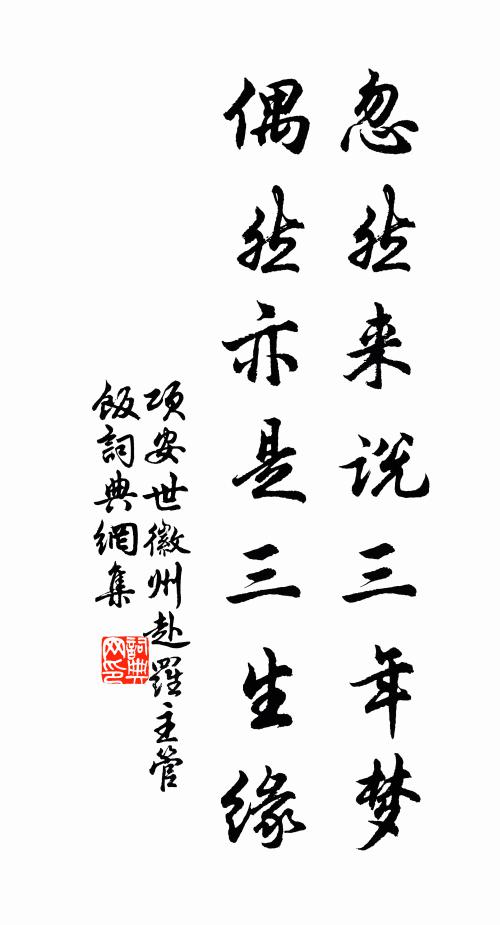 忽然来说三年梦
偶然亦是三生缘
项安世徽州赴羅主管
飯詞典網集
詞典网印